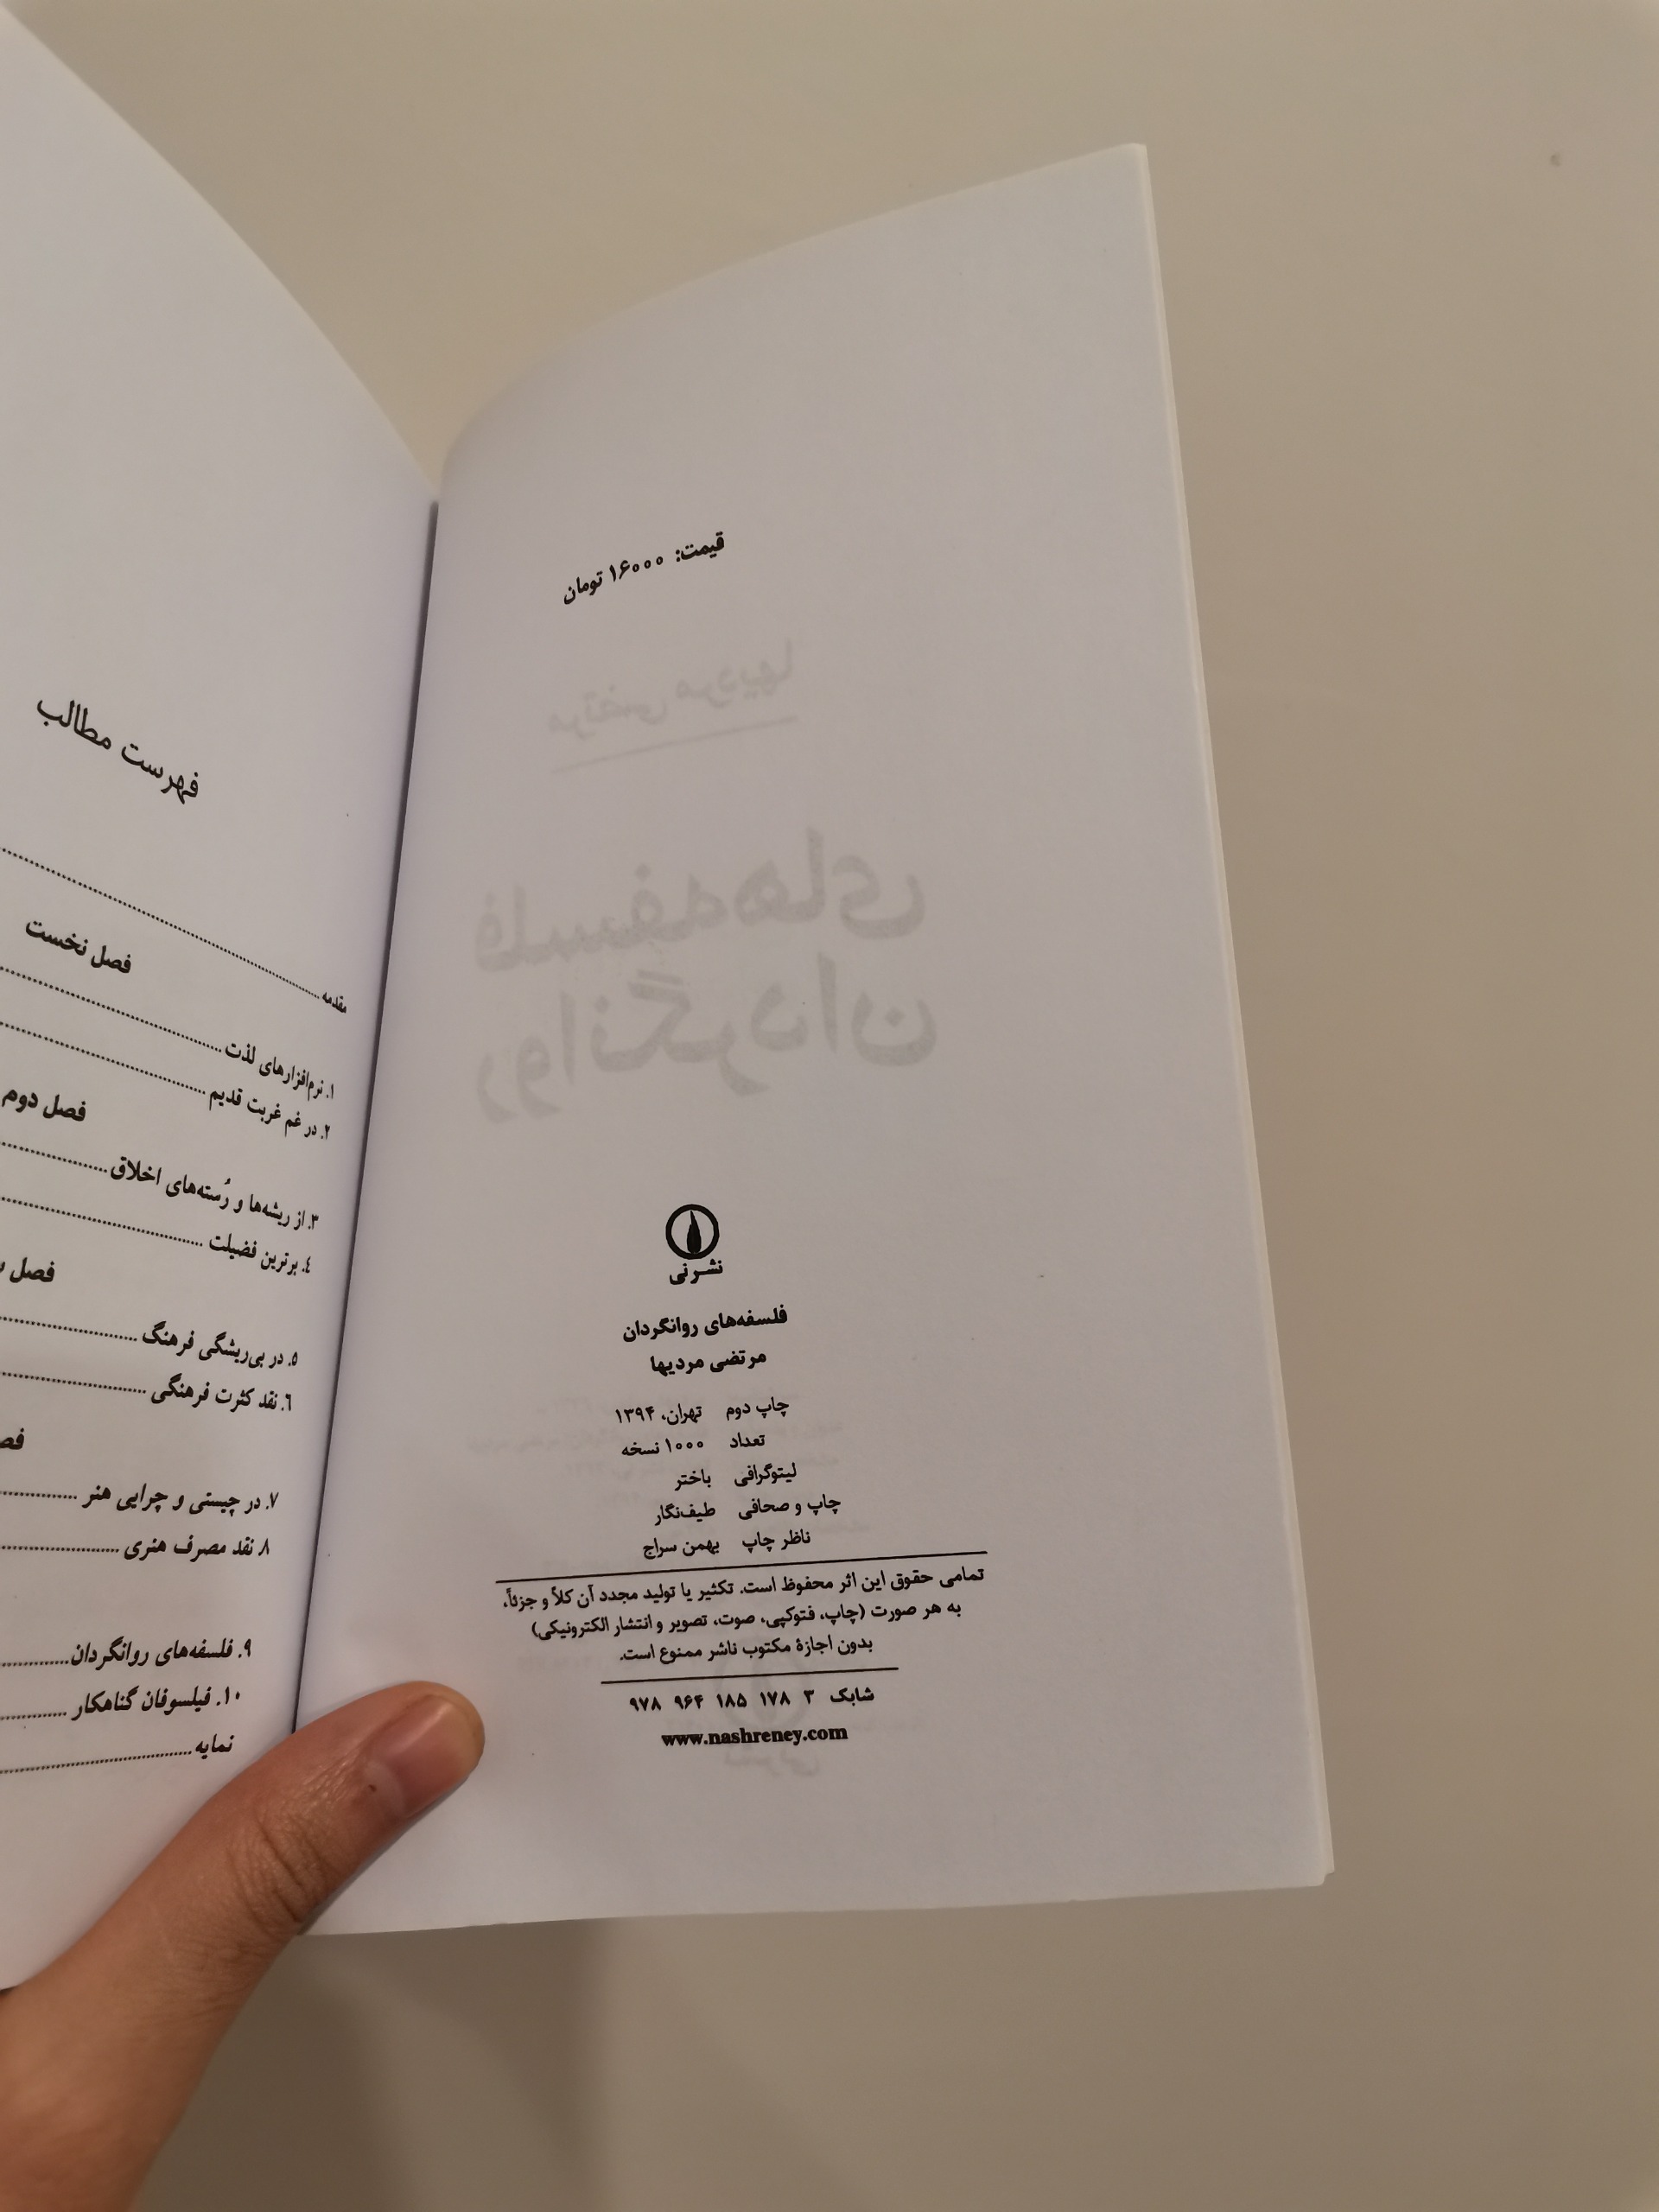 قیمت: ۱۶۰۰۰ تومان
نشرنی
فلسفه‌های روانگردان
مرتضی مردیها
چاپ دوم تهران، ۱۳۹۴
تعداد ۱۰۰۰ نسخه
لیتوگرافی باختر
چاپ و صحافی طیف‌نگار
ناظر چاپ بهمن سراج
تمامی حقوق این اثر محفوظ است. تکثیر یا تولید مجدد آن کلاً و جزئاً،
به هر صورت (چاپ، فتوکپی، صوت، تصویر و انتشار الکترونیکی)
بدون اجازهٔ مکتوب ناشر ممنوع است.
شابک ۳ ۱۷۸ ۱۸۵ ۹۶۴ ۹۷۸
www.nashreney.com
فهرست مطالب
مقدمه
فصل نخست
۱. نرم‌افزارهای لذت
۲. در غم غربت قدیم
فصل دوم
۳. از ریشه‌ها و رُسته‌های اخلاق
۴. برترین فضیلت
فصل
۵. در بی‌ریشگی فرهنگ
۶. نقد کثرت فرهنگی
۷. در چیستی و چرایی هنر
۸. نقد مصرف هنری
۹. فلسفه‌های روانگردان
۱۰. فیلسوفان گناهکار
نمایه